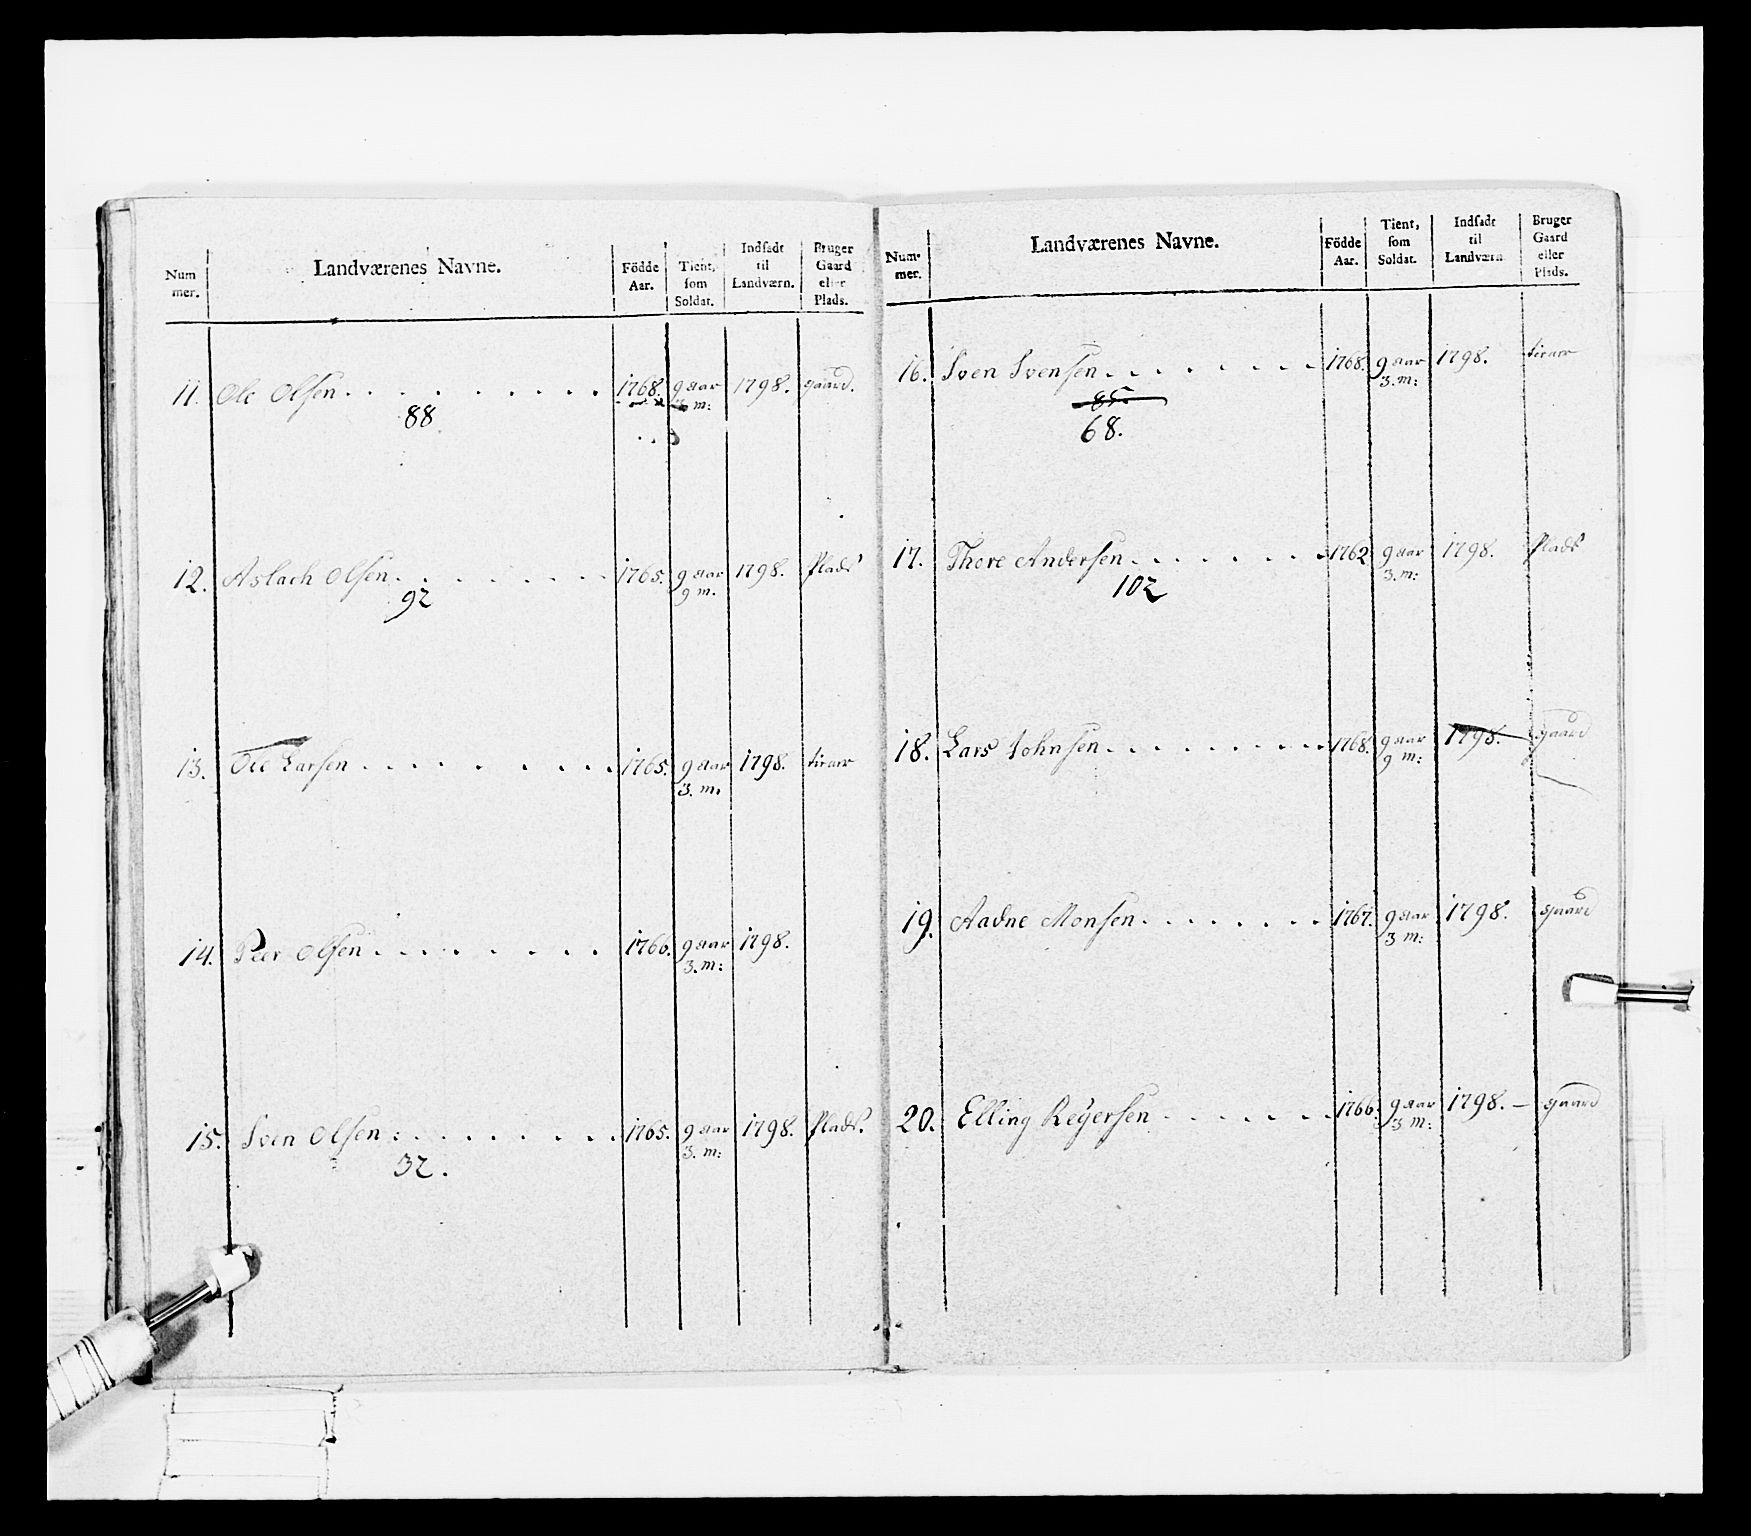 Num mer. Landværenes Navne. Födde Aar. Tient, som Soldat. Indsadt til Landværn. Bruger Gaard eller Plads.
11. Ole Olsen . . . . . . . . 1768. 9 aar 1798. gaard.
88 3 m:
12. Aslach Olsen . . . . . . . 1765. 9 aar 1798. Plads
92 9 m.
13. Ole Larsen . . . . . . . . 1765. 9 aar 1798. tiener
3. m.
14. Peer Olsen . . . . . . . . 1766. 9 aar 1798.
3. m:
15. Sven Olsen . . . . . . . . 1765. 9 aar 1798. Plads.
32. 3. m:
Num- mer. Landværenes Navne. Födde Aar. Tient, som Soldat. Indsadt til Landværn Bruger Gaard eller Plads.
16. Sven Svensen . . . . . . . 1768. 9 aar 1798. tiener
85. 3. m:
68.
17. Thore Andersen . . . . . . 1762 9 aar 1798. Plads
102 3. m:
18. Lars Johnsen . . . . . . . 1768. 9 aar 1798. gaard
9 m:
19. Aadne Monsen . . . . . . . 1767. 9 aar 1798. gaard
3 m:
20. Elling Reyersen . . . . . . 1766. 9 aar 1798. – gaard
3 m: